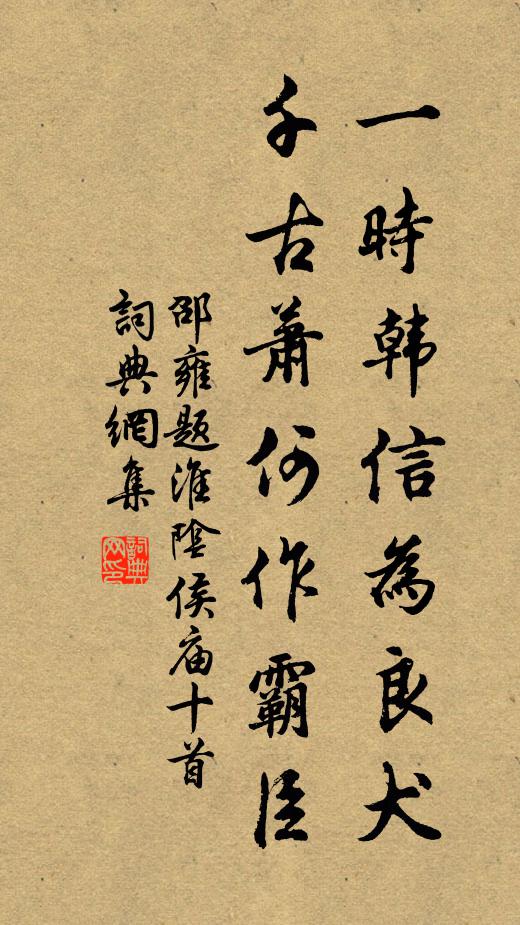 一時韓信為良犬
千古蕭何作霸臣
邵雍題淮陰侯庙十首
詞典網集
詞典網印